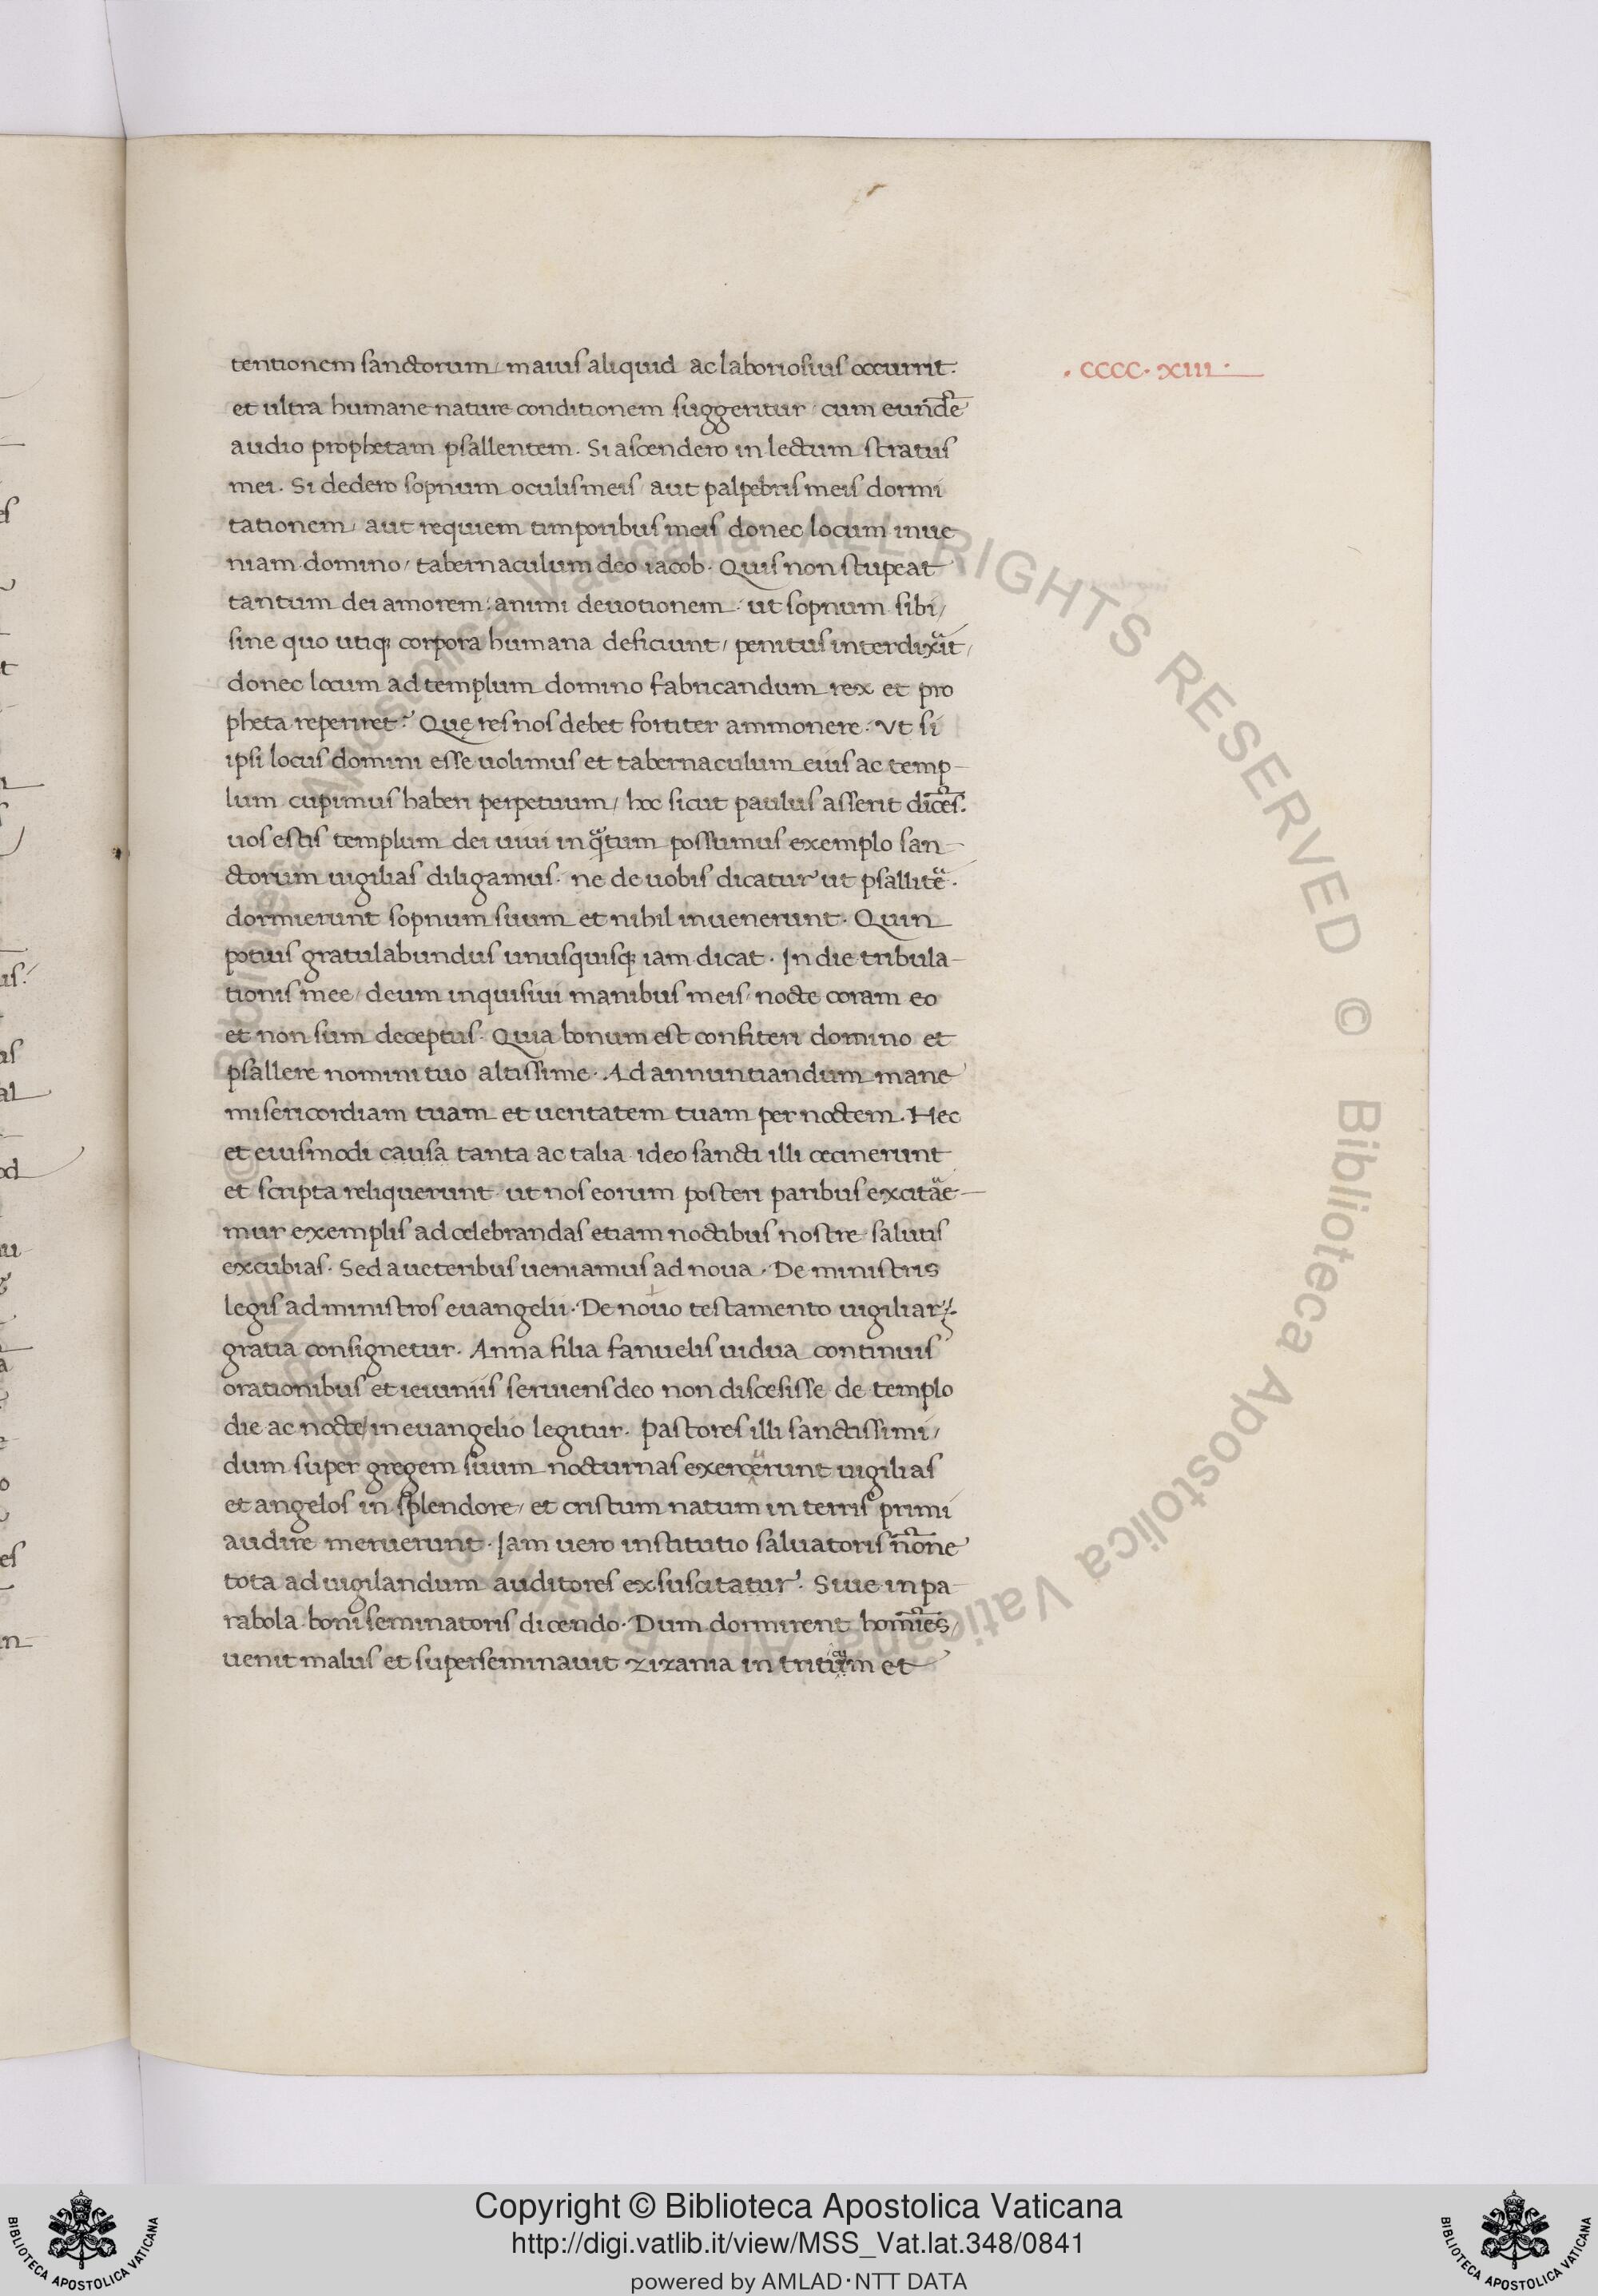 tentionem sanctorum / maius aliquid ac laboriosius occurrit.
.CCCC.XIII.
et ultra humane nature conditionem suggeritur / cum eundē
audio prophetam psallentem. Si ascendero in lectum stratus
mei. Si dedero sopnum oculis meis / aut palpebris meis dormi
tationem / aut requiem timporibus meis donec locum inue
niam domino / tabernaculum deo iacob. Quis non stupeat
tantum dei amorem: animi deuotionem. ut sopnum sibi /
sine quo utiq; corpora humana deficiunt / penitus interdixͣit /
donec locum ad templum domino fabricandum rex et pro
pheta reperiret? Quę res nos debet fortiter ammonere. Vt si
ipsi locus domini esse uolimus et tabernaculum eius ac temp-
lum cupimus haberi perpetuum / hoc sicut paulus asserit dicēs.
uos estis templum dei uiui in qͣtum possumus exemplo san-
ctorum uigilias diligamus. ne de uobis dicatur ut psallitͣe.
dormierunt sopnum suum et nihil inuenerunt. Quin
potius gratulabundus unusquisq; iam dicat. In die tribula-
tionis mee / deum inquisiui manibus meis / nocte coram eo
et non sum deceptus. Quia bonum est confiteri domino et
psallere nomini tuo altissime. Ad annuntiandum mane
misericordiam tuam et ueritatem tuam per noctem. Hec
et eiusmodi causa tanta ac talia ideo sancti illi cecinerunt
et scripta reliquerunt ut nos eorum posteri paribus excitͣe-
mur exemplis ad celebrandas etiam noctibus nostre salutis
excubias. Sed a ueteribus ueniamus ad noua. De ministris
legis ad ministros euangelii. De nouo testamento uigiliaꝝ.
gratia consignetur. Anna filia fanuelis uidua continuis
orationibus et ieiuniis seruens deo non discesisse de templo
die ac nocte / in euangelio legitur. Pastores illi sanctissimi /
dum super gregem suum nocturnas exercͣerunt uigilias
et angelos in splendore / et cristum natum in terris primi
audire meruerunt. Iam uero institutio saluatoris nōne
tota ad uigilandum auditores exsuscitatur. Siue in pa-
rabola boni seminatoris dicendo. Dum dormirent homīes /
uenit malus et superseminauit zizania in tritiͣm et
Copyright © Biblioteca Apostolica Vaticana
http://digi.vatlib.it/view/MSS_Vat.lat.348/0841
powered by AMLAD·NTT DATA
BIBLIOTECA APOSTOLICA VATICANA
BIBLIOTECA APOSTOLICA VATICANA
© Biblioteca Apostolica Vaticana ALL RIGHTS RESERVED © Biblioteca Apostolica Vaticana ALL RIGHTS RESERVED